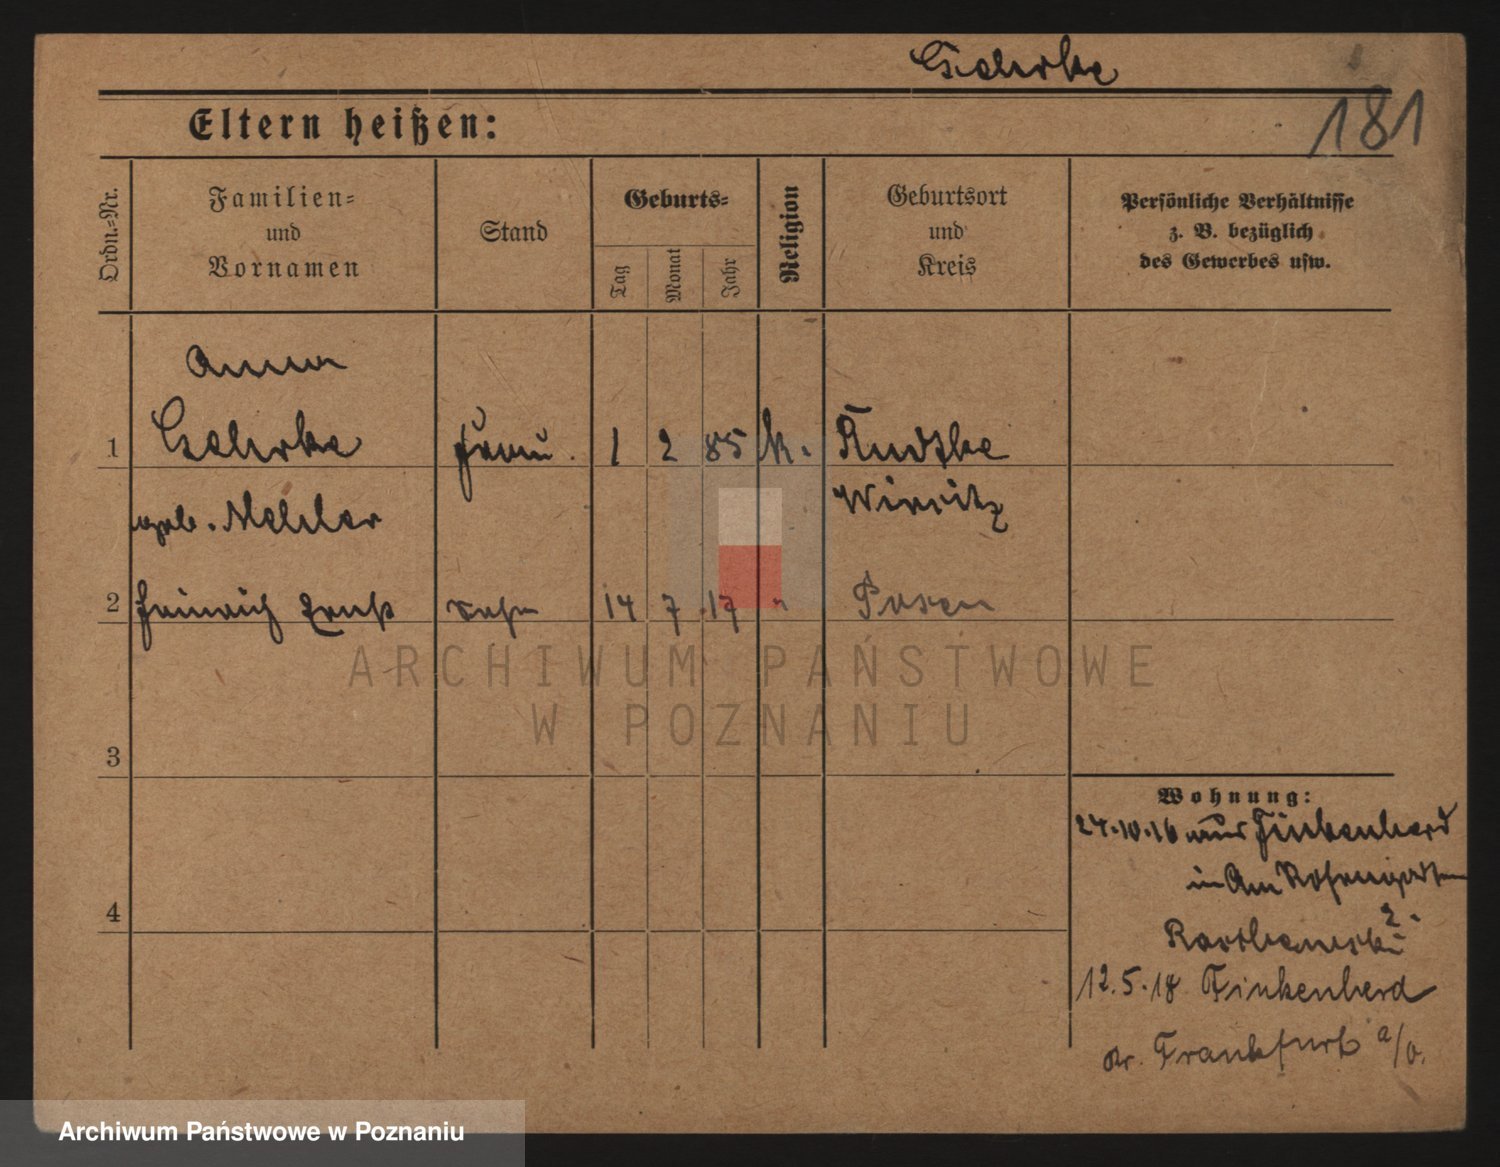 Gehrke
181
Eltern heißen:
Ordn.=Nr.
Familien=
und
Vornamen
Stand
Geburts=
Tag
Monat
Jahr
Religion
Geburtsort
und
Kreis
Persönliche Verhältnisse
z. B. bezüglich
des Gewerbes usw.
Anna
1 Gehrke Frau 1 2 85 k.
geb.
Wirsitz
2 Heinrich Ernst Sohn 14 7 17 " Posen
3
4
Wohnung:
24.10.16 Finkenherd
in Am
2.
12.5.18 Finkenherd
Kr. Frankfurt a/O.
ARCHIWUM PAŃSTWOWE
W POZNANIU
Archiwum Państwowe w Poznaniu